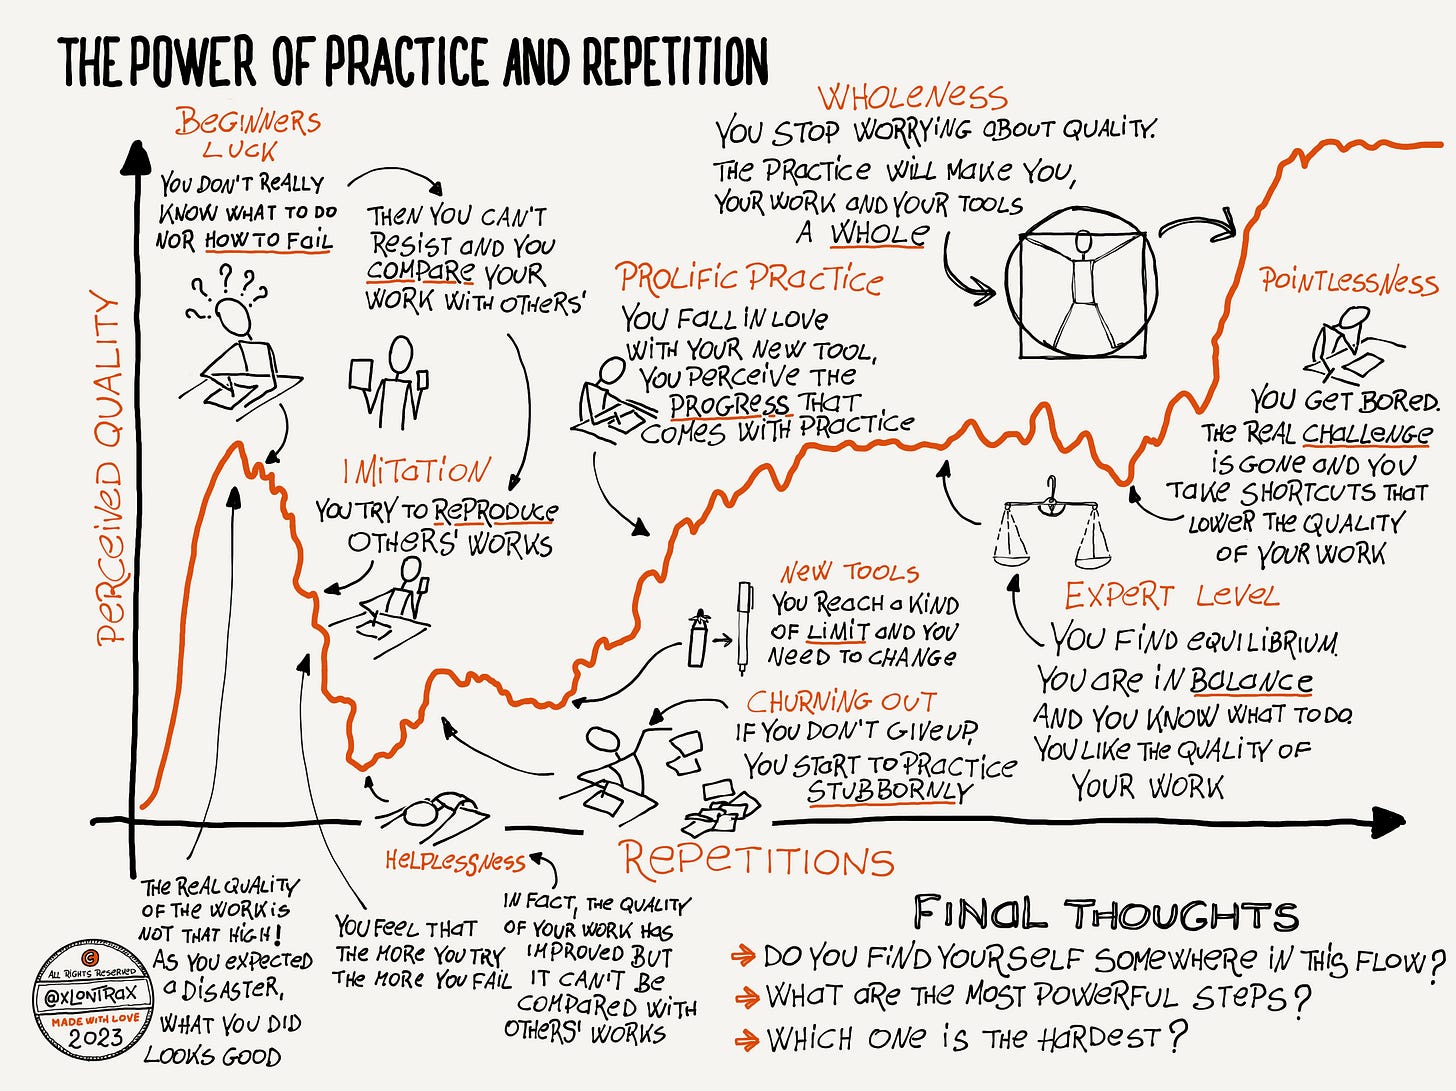 THE POWER OF PRACTICE AND REPETITION
BEGINNERS
LUCK
YOU DON'T REALLY
KNOW WHAT TO DO
NOR HOW TO FAIL
? ? ? ? ?
THEN YOU CAN'T
RESIST AND YOU
COMPARE YOUR
WORK WITH OTHERS'
IMITATION
YOU TRY TO REPRODUCE
OTHERS' WORKS
PROLIFIC PRACTICE
YOU FALL IN LOVE
WITH YOUR NEW TOOL,
YOU PERCEIVE THE
PROGRESS THAT
COMES WITH PRACTICE
WHOLENESS
YOU STOP WORRYING ABOUT QUALITY.
THE PRACTICE WILL MAKE YOU,
YOUR WORK AND YOUR TOOLS
A WHOLE
POINTLESSNESS
YOU GET BORED.
THE REAL CHALLENGE
IS GONE AND YOU
TAKE SHORTCUTS THAT
LOWER THE QUALITY
OF YOUR WORK
PERCEIVED QUALITY
NEW TOOLS
YOU REACH A KIND
OF LIMIT AND YOU
NEED TO CHANGE
EXPERT LEVEL
YOU FIND EQUILIBRIUM.
YOU ARE IN BALANCE
AND YOU KNOW WHAT TO DO.
YOU LIKE THE QUALITY OF
YOUR WORK
CHURNING OUT
IF YOU DON'T GIVE UP,
YOU START TO PRACTICE
STUBBORNLY
HELPLESSNESS
REPETITIONS
THE REAL QUALITY
OF THE WORK IS
NOT THAT HIGH!
AS YOU EXPECTED
A DISASTER,
WHAT YOU DID
LOOKS GOOD
YOU FEEL THAT
THE MORE YOU TRY
THE MORE YOU FAIL
IN FACT, THE QUALITY
OF YOUR WORK HAS
IMPROVED BUT
IT CAN'T BE
COMPARED WITH
OTHERS' WORKS
FINAL THOUGHTS
DO YOU FIND YOURSELF SOMEWHERE IN THIS FLOW?
WHAT ARE THE MOST POWERFUL STEPS?
WHICH ONE IS THE HARDEST?
©
ALL RIGHTS RESERVED
@XLONTRAX
MADE WITH LOVE
2023